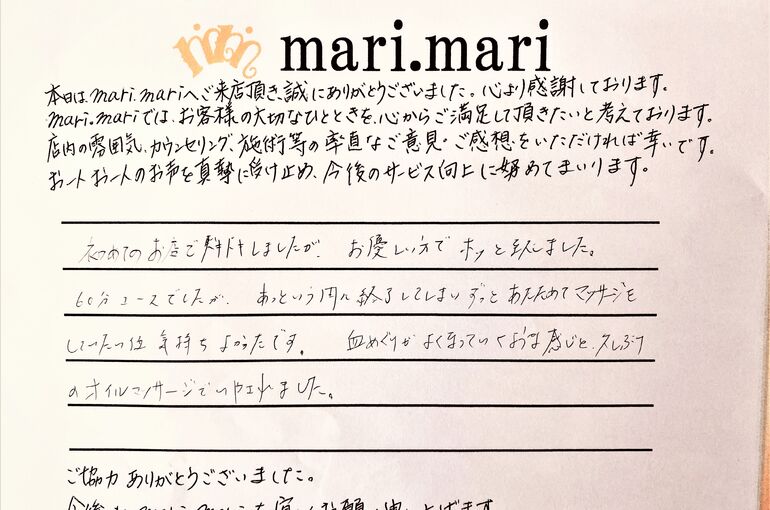 mari.mari
本日は、mari.mariへご来店頂き、誠にありがとうございました。心より感謝しております。
mari.mariでは、お客様の大切なひとときを、心からご満足して頂きたいと考えております。
店内の雰囲気、カウンセリング、施術等の率直なご意見・ご感想をいただければ幸いです。
お一人お一人のお声を真摯に受け止め、今後のサービス向上に努めてまいります。
初めてのお店でドキドキしましたが、お優しい方でホッと致しました。
60分コースでしたが、あっという間に終了してしまいずっとあたためてマッサージを
していたい位気持ちよかったです。血めぐりがよくなっていくような感じと、久しぶり
のオイルマッサージでいやされました。
ご協力ありがとうございました。